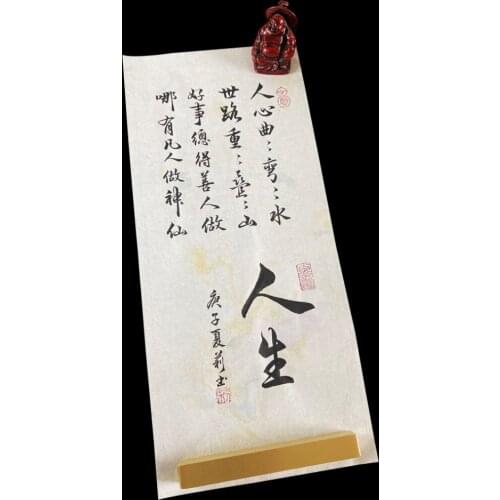 人心曲〻弯〻水
世路重〻叠〻山
好事總得善人做
哪有凡人做神仙
人生
庚子夏莉书